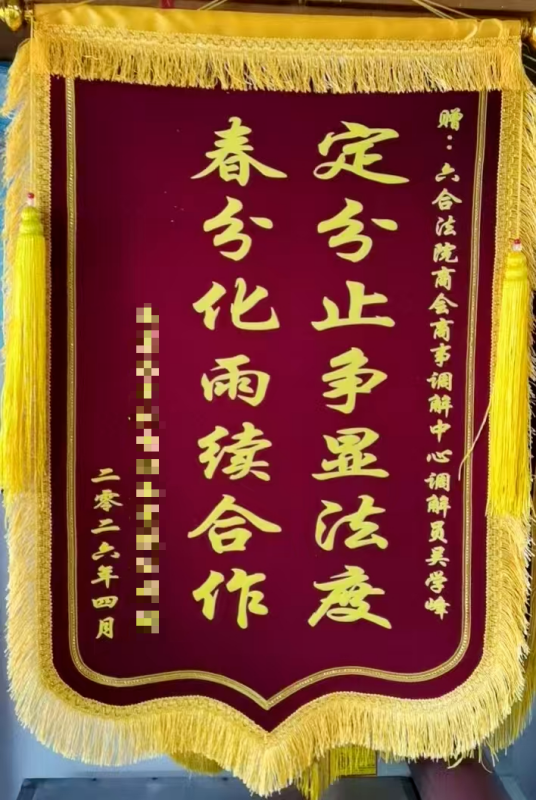 赠：六合法院商会商事调解中心调解员吴学峰
定分止争显法度
春分化雨续合作
二零二六年四月